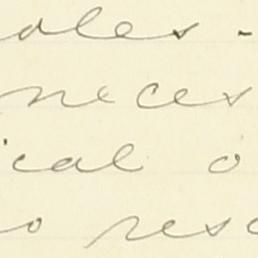 dles -
neces
ical o
o resc